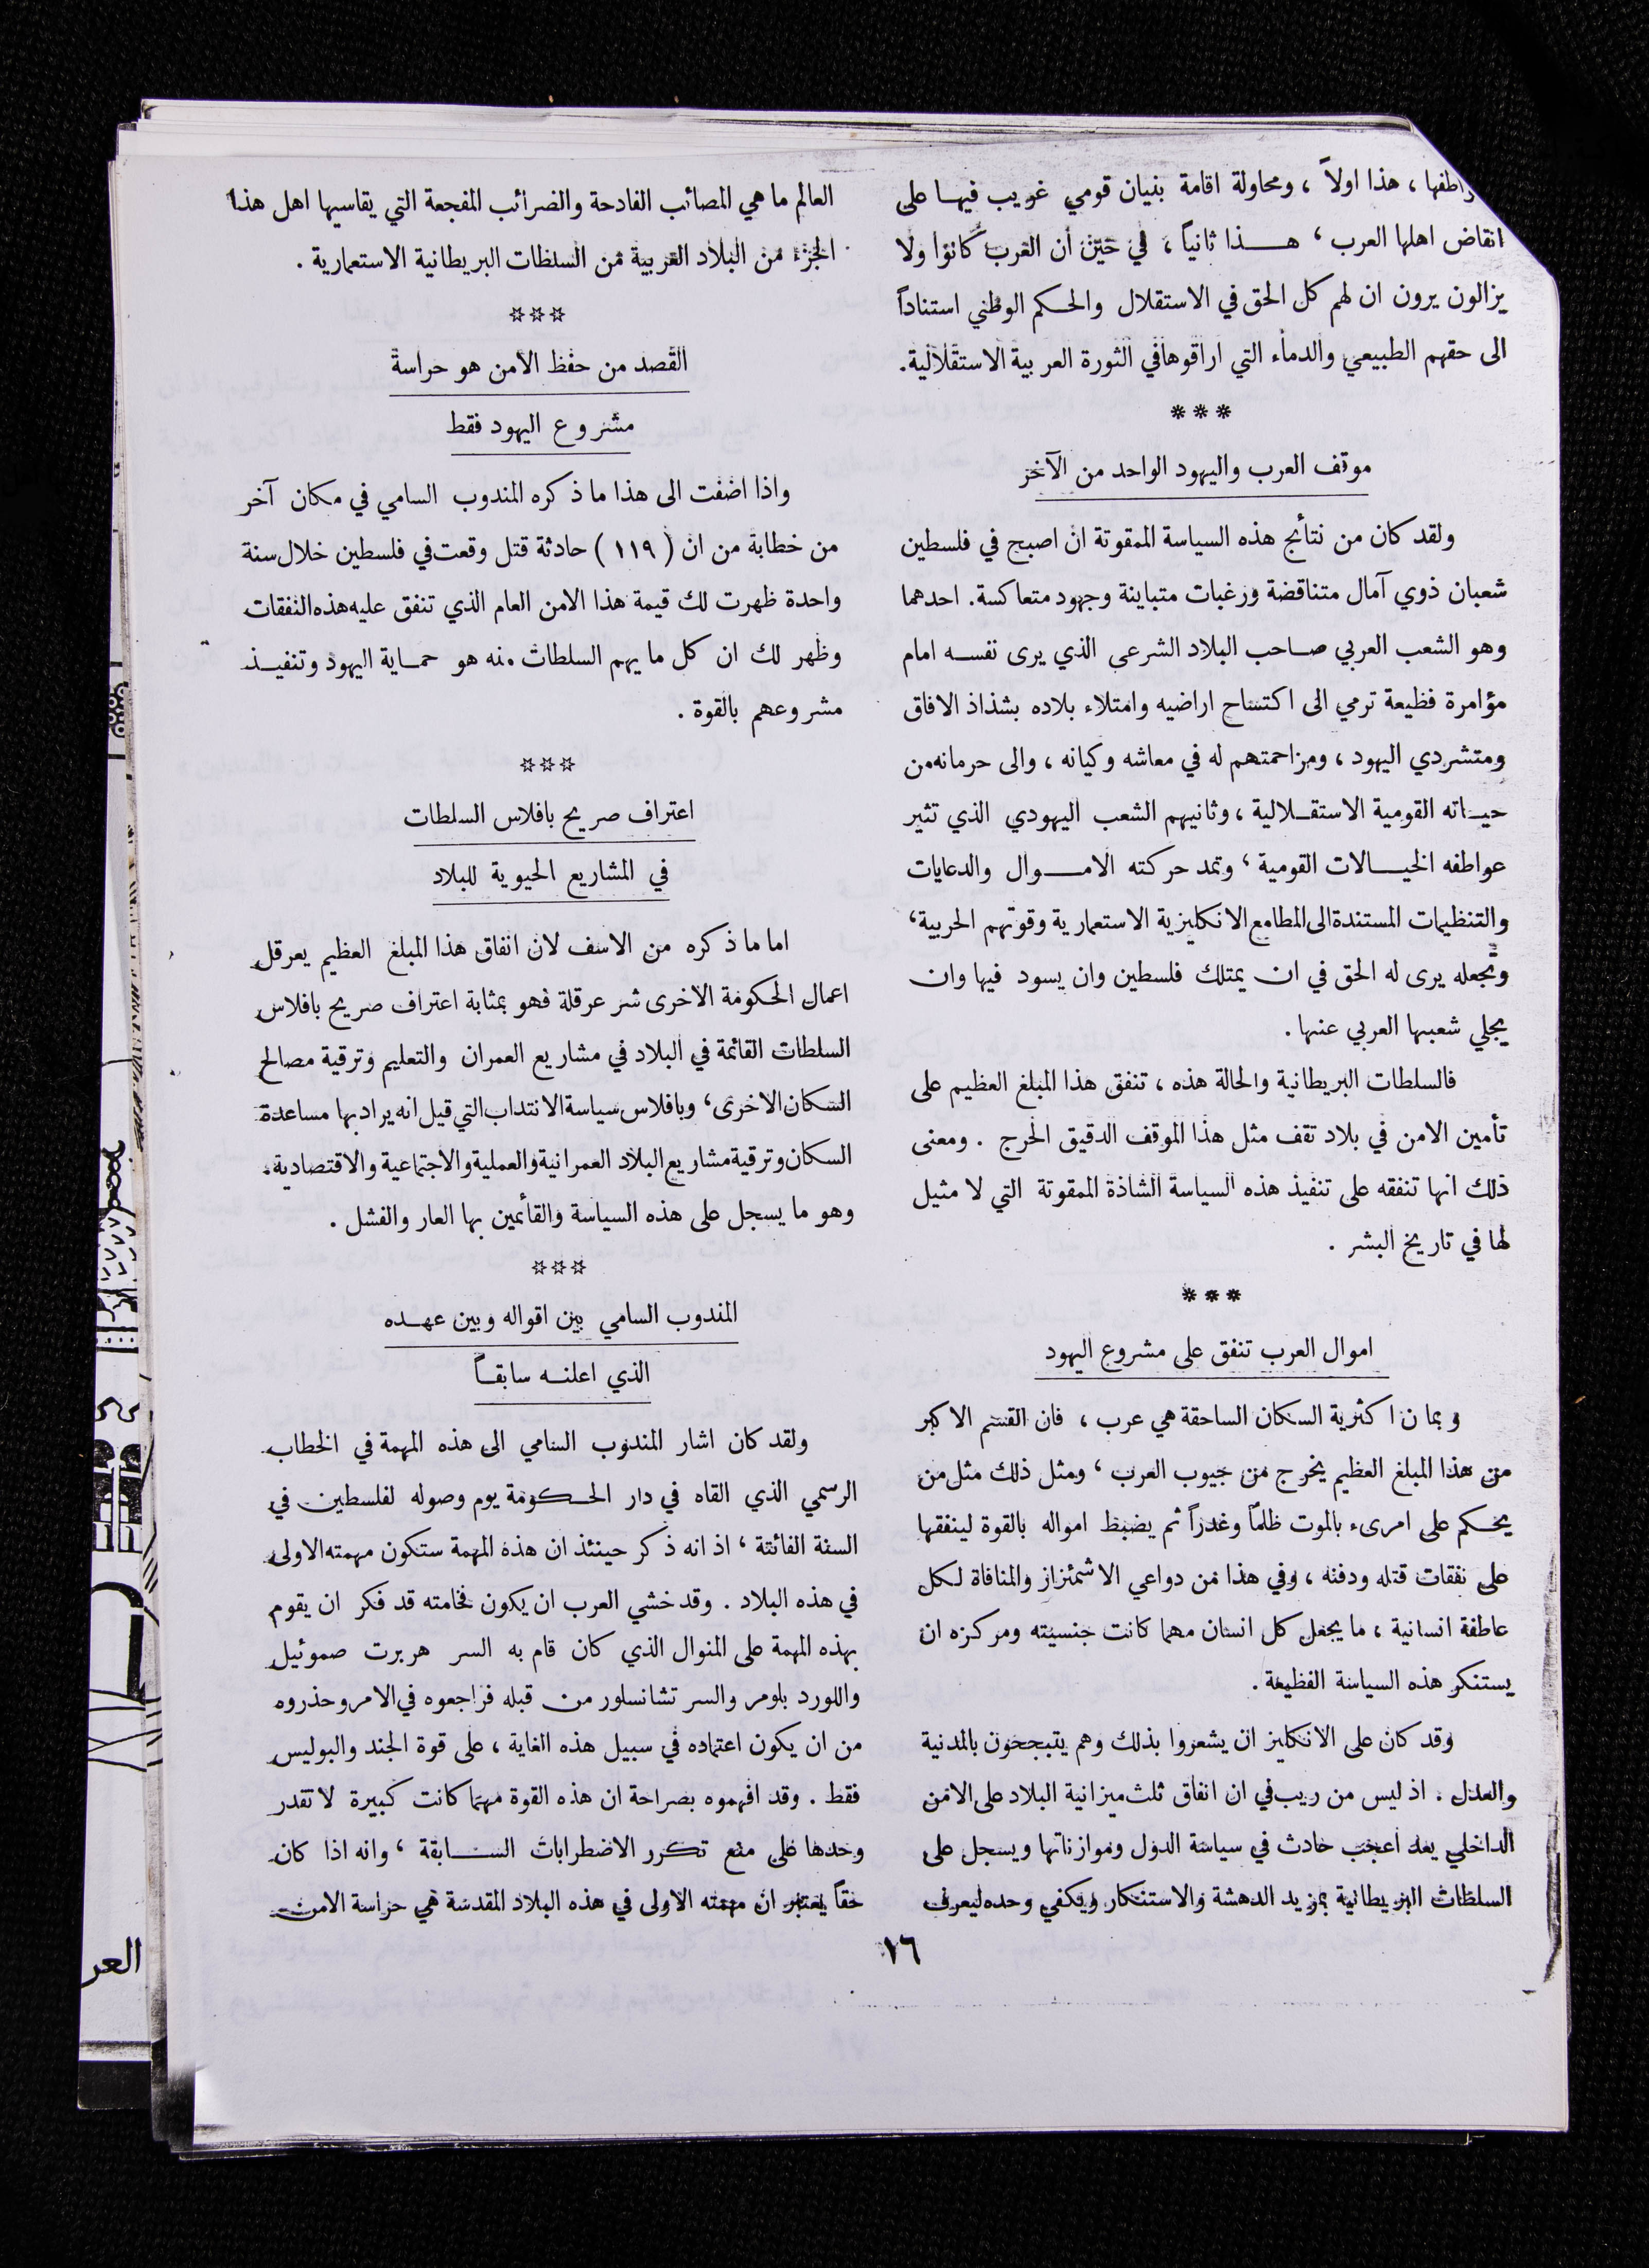 اطفها ، هذا اولاً ، ومحاولة اقامة بنيان قومي غريب فيها على
انقاض اهلها العرب ، هذا ثانياً ، في حين أن العرب كانوا ولا
يزالون يرون ان لهم كل الحق في الاستقلال والحكم الوطني استناداً
الى حقهم الطبيعي والدماء التي اراقوها في الثورة العربية الاستقلالية.
***
موقف العرب واليهود الواحد من الآخر
ولقد كان من نتائج هذه السياسة الممقوتة ان اصبح في فلسطين
شعبان ذوي آمال متناقضة ورغبات متباينة وجهود متعاكسة. احدهما
وهو الشعب العربي صاحب البلاد الشرعي الذي يرى نفسه امام
مؤامرة فظيعة ترمي الى اكتساح اراضيه وامتلاء بلاده بشذاذ الافاق
ومتشردي اليهود ، ومزاحمتهم له في معاشه وكيانه ، والى حرمانه من
حياته القومية الاستقلالية ، وثانيهم الشعب اليهودي الذي تثير
عواطفه الخيالات القومية ، وتمد حركته الاموال والدعايات
والتنظيمات المستندة الى المطامع الانكليزية الاستعمارية وقوتهم الحربية ،
وتجعله يرى له الحق في ان يمتلك فلسطين وان يسود فيها وان
يجلي شعبها العربي عنها .
فالسلطات البريطانية والحالة هذه ، تنفق هذا المبلغ العظيم على
تأمين الامن في بلاد تقف مثل هذا الموقف الدقيق الحرج . ومعنى
ذلك انها تنفقه على تنفيذ هذه السياسة الشاذة الممقوتة التي لا مثيل
لها في تاريخ البشر .
***
اموال العرب تنفق على مشروع اليهود
وبما ن اكثرية السكان الساحقة هي عرب ، فان القسم الاكبر
من هذا المبلغ العظيم يخرج من جيوب العرب ، ومثل ذلك مثل من
يحكم على امرىء بالموت ظلماً وغدراً ثم يضبط امواله بالقوة لينفقها
على نفقات قتله ودفنه ، وفي هذا من دواعي الاشمئزاز والمنافاة لكل
عاطفة انسانية ، ما يجعل كل انسان مهما كانت جنسيته ومركزه ان
يستنكر هذه السياسة الفظيعة .
وقد كان على الانكليز ان يشعروا بذلك وهم يتبجحون بالمدنية
والعدل . اذ ليس من ريب في ان انفاق ثلث ميزانية البلاد على الامن
الداخلي يعد أعجب حادث في سياسة الدول وموازناتها ويسجل على
السلطات البريطانية بمزيد الدهشة والاستنكار ويكفي وحده ليعرف
العالم ما هي المصائب الفادحة والضرائب المفجعة التي يقاسيها اهل هذا
الجزء من البلاد العربية من السلطات البريطانية الاستعمارية .
***
القصد من حفظ الامن هو حراسة
مشروع اليهود فقط
واذا اضفت الى هذا ما ذكره المندوب السامي في مكان آخر
من خطابة من ان ( ١١٩ ) حادثة قتل وقعت في فلسطين خلال سنة
واحدة ظهرت لك قيمة هذا الامن العام الذي تنفق عليه هذه النفقات
وظهر لك ان كل ما يهم السلطات منه هو حماية اليهود وتنفيذ
مشروعهم بالقوة .
***
اعتراف صريح بافلاس السلطات
في المشاريع الحيوية للبلاد
اما ما ذكره من الاسف لان انفاق هذا المبلغ العظيم يعرقل
اعمال الحكومة الاخرى شر عرقلة فهو بمثابة اعتراف صريح بافلاس
السلطات القائمة في البلاد في مشاريع العمران والتعليم وترقية مصالح
السكان الاخرى ، وبافلاس سياسة الانتداب التي قيل انه يراد بها مساعدة
السكان وترقية مشاريع البلاد العمرانية والعملية والاجتماعية والاقتصادية.
وهو ما يسجل على هذه السياسة والقائمين بها العار والفشل .
***
المندوب السامي بين اقواله وبين عهده
الذي اعلنه سابقاً
ولقد كان اشار المندوب السامي الى هذه المهمة في الخطاب
الرسمي الذي القاه في دار الحكومة يوم وصوله لفلسطين في
السنة الفائتة ، اذ انه ذكر حينئذ ان هذه المهمة ستكون مهمته الاولى
في هذه البلاد . وقد خشي العرب ان يكون فخامته قد فكر ان يقوم
بهذه المهمة على المنوال الذي كان قام به السر هربرت صموئيل
واللورد بلومر والسر تشانسلور من قبله فراجعوه في الامر وحذروه
من ان يكون اعتماده في سبيل هذه الغاية ، على قوة الجند والبوليس
فقط . وقد افهموه بصراحة ان هذه القوة مهما كانت كبيرة لا تقدر
وحدها على منع تكرر الاضطرابات السابقة ، وانه اذا كان
حقاً يعتبر ان مهمته الاولى في هذه البلاد المقدسة هي حراسة الامن
١٦
العر